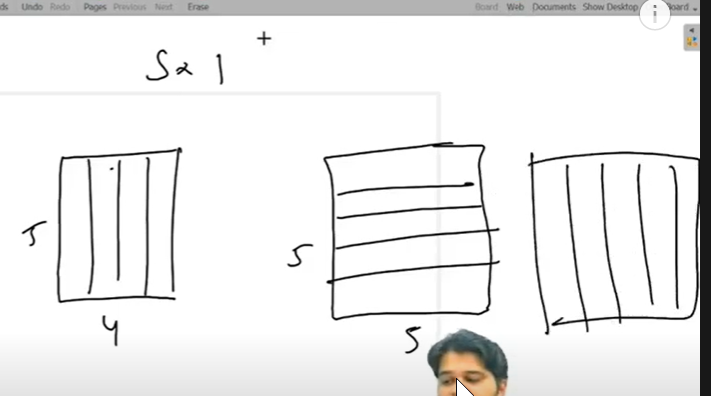 Undo Redo Pages Previous Next Erase Board Web Documents Show Desktop
5x1
5
4
5
5